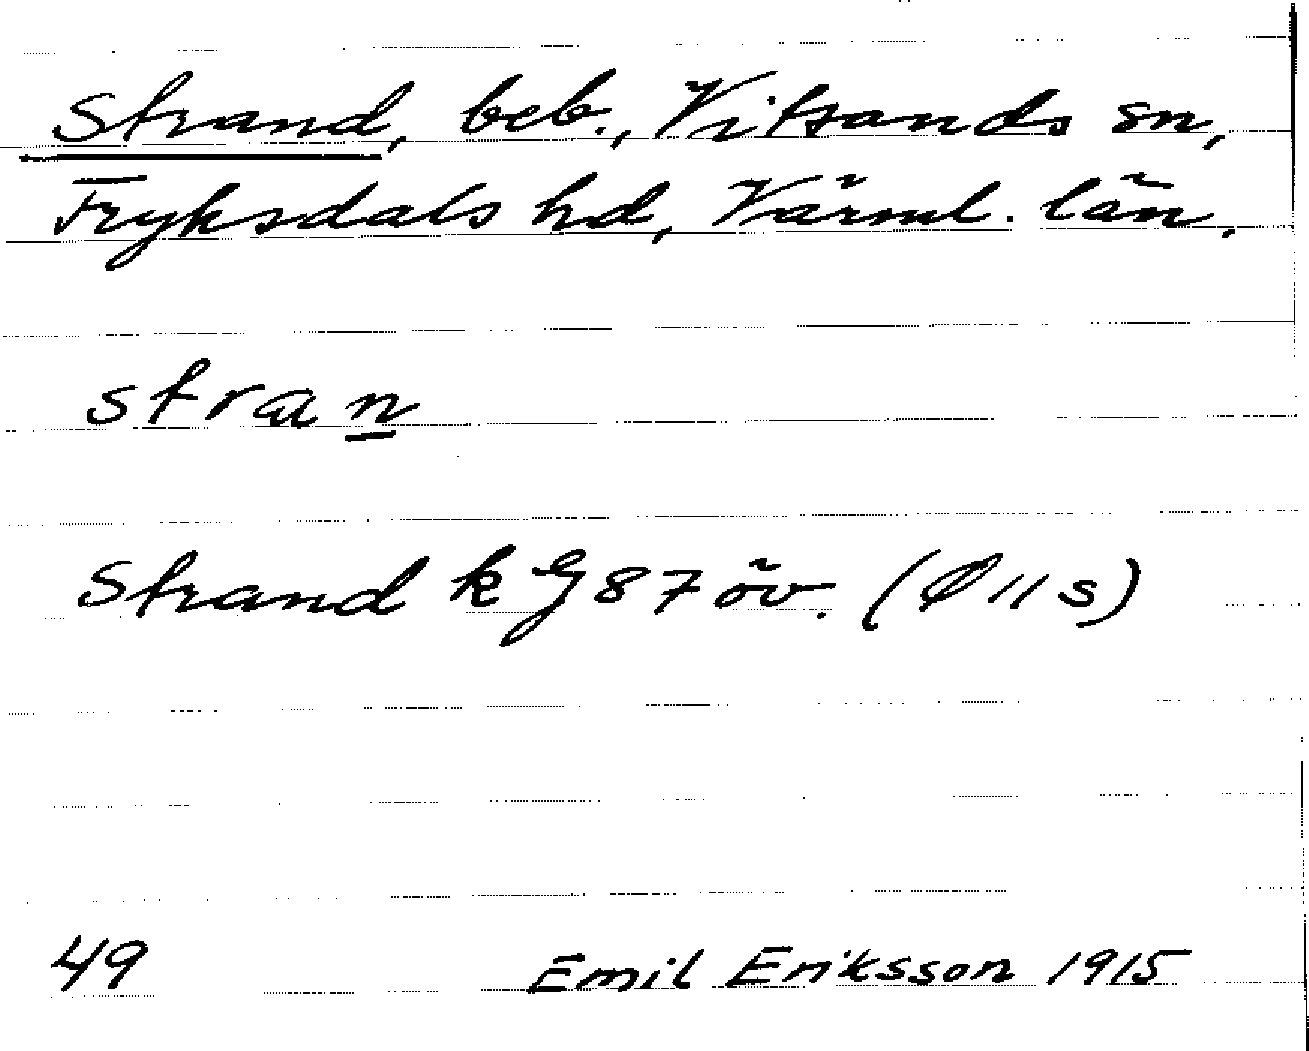 Strand, beb., Vitsands sn,
Fryksdals hd, Värml. län,
stran
Strand k G 87 öv. (Ø 11 s)
49 Emil Eriksson 1915